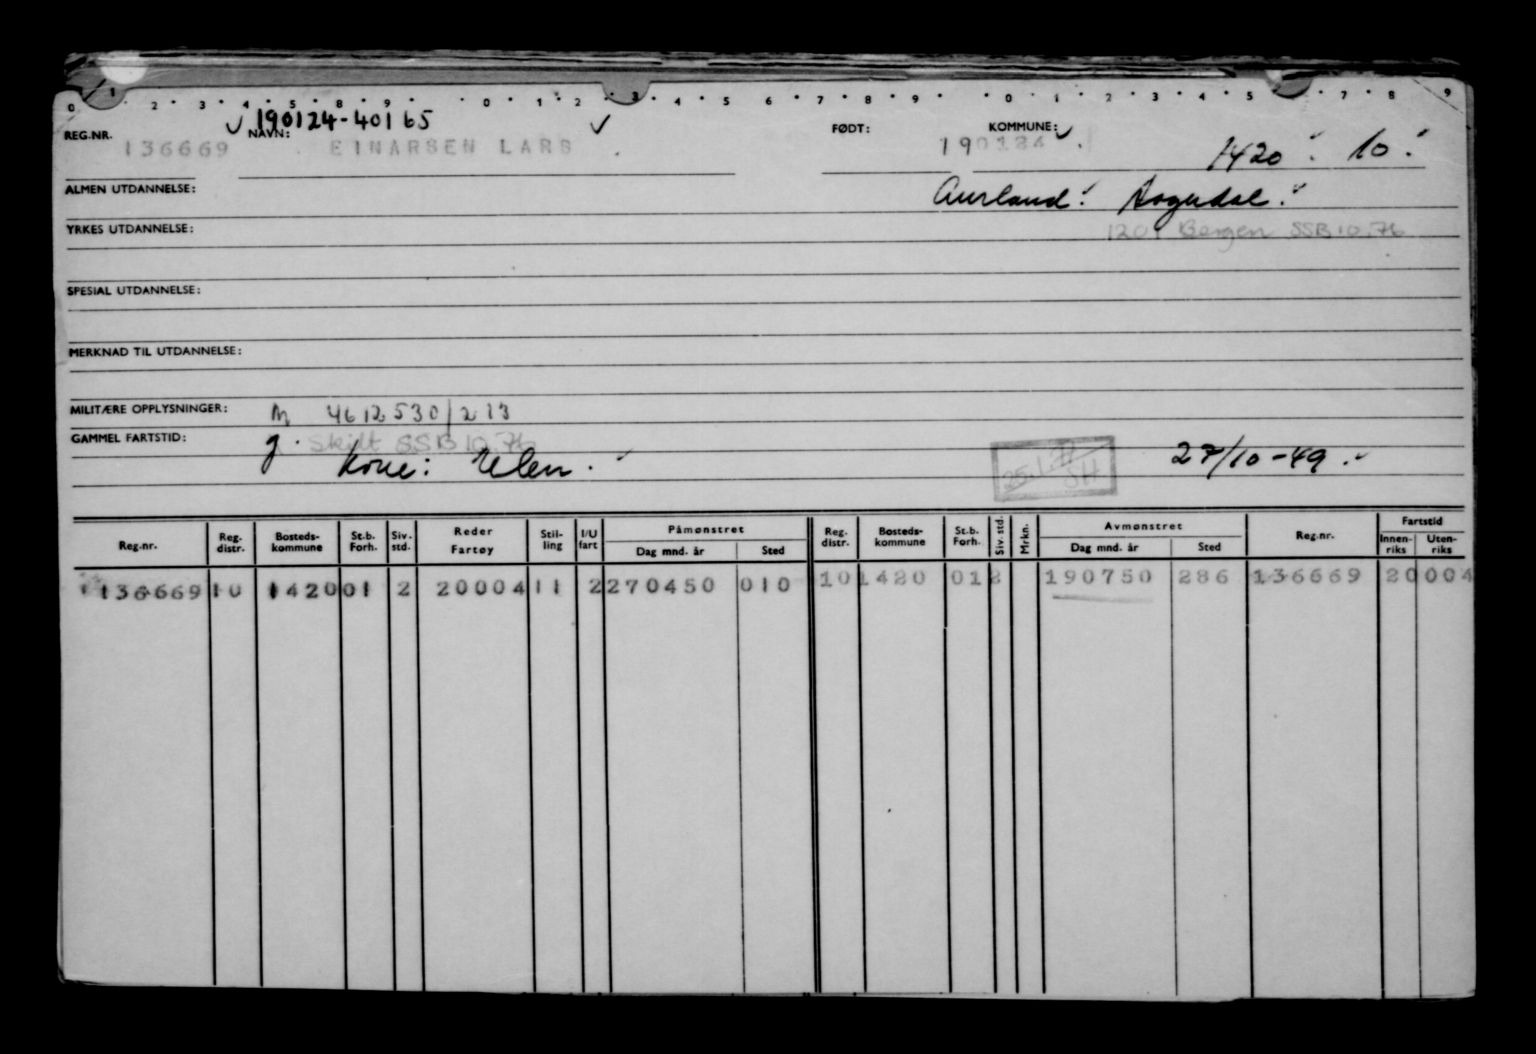 0 1 2 3 4 5 8 9 0 1 2 3 4 5 6 7 8 9 0 1 2 3 4 5 7 8 9
190124-40165
REG.NR. NAVN: FØDT: KOMMUNE:
136669 EINARSEN LARS 190124 1420 10
ALMEN UTDANNELSE: Aurland
YRKES UTDANNELSE: 1201 Bergen SSB 10.76
SPESIAL UTDANNELSE:
MERKNAD TIL UTDANNELSE:
MILITÆRE OPPLYSNINGER: M 4612530/213
GAMMEL FARTSTID: g. Skilt SSB 10.76
Kone: Elen. 25.1.77 SH 27/10-49.
Reg.nr. Reg. distr. Bosteds- kommune St.b. Forh. Siv. std. Reder Fartøy Stil- ling I/U fart Påmønstret Dag mnd. år Sted Reg. distr. Bosteds- kommune St.b. Forh. Siv. std. Mrkn. Avmønstret Dag mnd. år Sted Reg.nr. Fartstid Innen- riks Uten- riks
136669 10 1420 01 2 20004 11 2 270450 010 10 1420 01 2 190750 286 136669 20 004